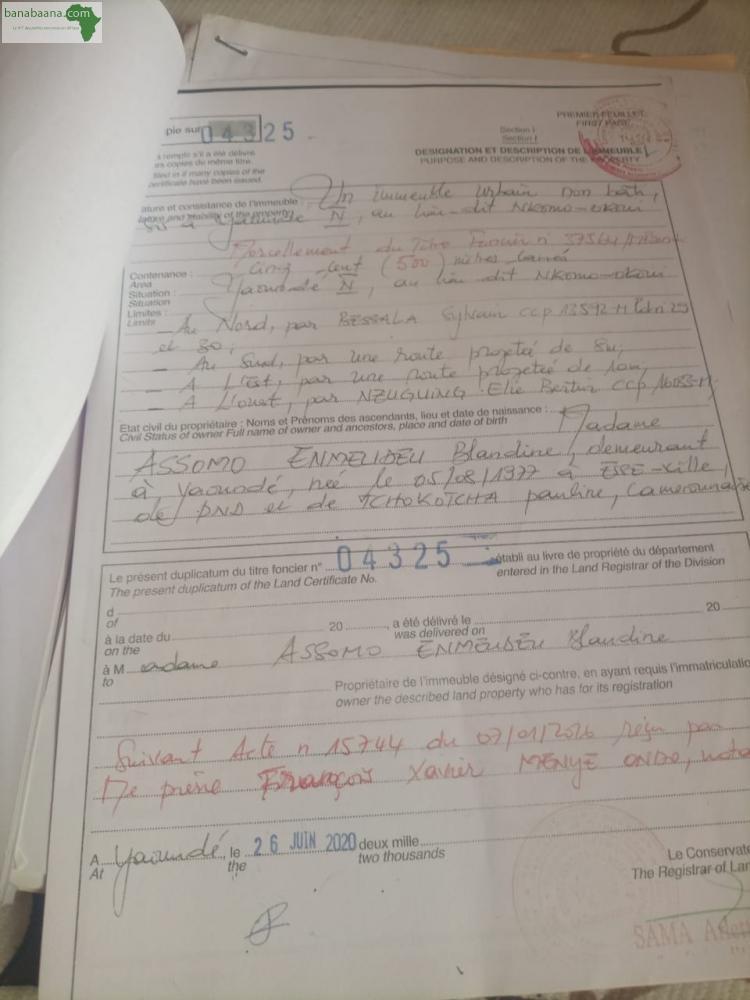 banabaana.com
PREMIER FEUILLET
FIRST PAGE
pie sur 04325
Section I
Section I
DESIGNATION ET DESCRIPTION DE L'IMMEUBLE
PURPOSE AND DESCRIPTION OF THE PROPERTY
s'il a été délivré
copies du même titre.
if many copies of the
certificate have been issued.
ature et consistance de l'immeuble : Un immeuble urbain non bâti,
of the property sis à Yaoundé, au lieu-dit Nkomo-
Morcellement du Titre Foncier n°
Contenance : Cinq cent (500) mètres carrés
Area
Situation : Yaoundé, au lieu dit Nkomo-
Situation
Limites :
Limits
- Au Nord, par BESSALA Sylvain CCP
et 30;
- Au Sud, par une route projetée de 8m;
- A l'Est, par une route projetée de 10m;
- A l'ouest, par NZEUGUING Elie CCP
Etat civil du propriétaire : Noms et Prénoms des ascendants, lieu et date de naissance : Madame
Civil Status of owner Full name of owner and ancestors, place and date of birth
ASSOMO ENMEUDEU Blandine, demeurant
à Yaoundé, née le 05/08/1977 à ESE-ville,
de PND et de TCHOKOTCHA pauline, Camerounaise
Le présent duplicatum du titre foncier n° 04325 établi au livre de propriété du département
The present duplicatum of the Land Certificate No. entered in the Land Registrar of the Division
d
of
à la date du 20 , a été délivré le 20
on the was delivered on
à M adame ASSOMO ENMEUDEU Blandine
to
Propriétaire de l'immeuble désigné ci-contre, en ayant requis l'immatriculation
owner the described land property who has for its registration
Suivant Acte n 15744 du reçu par
François Xavier MENYE ONDO,
A Yaoundé, le 26 JUIN 2020 deux mille
At the two thousands
Le Conservate
The Registrar of Lan
SAMA